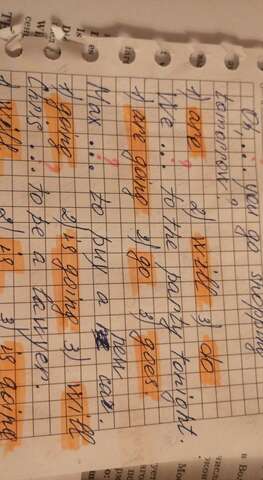 ... you go shopping
tomorrow?
1) are 2) will 3) do
We ... to the party tonight.
1) are going 2) go 3) goes
Max ... to buy a new car.
1) going 2) is going 3) will
Chris ... to be a lawyer.
1) will 2) is 3) is going